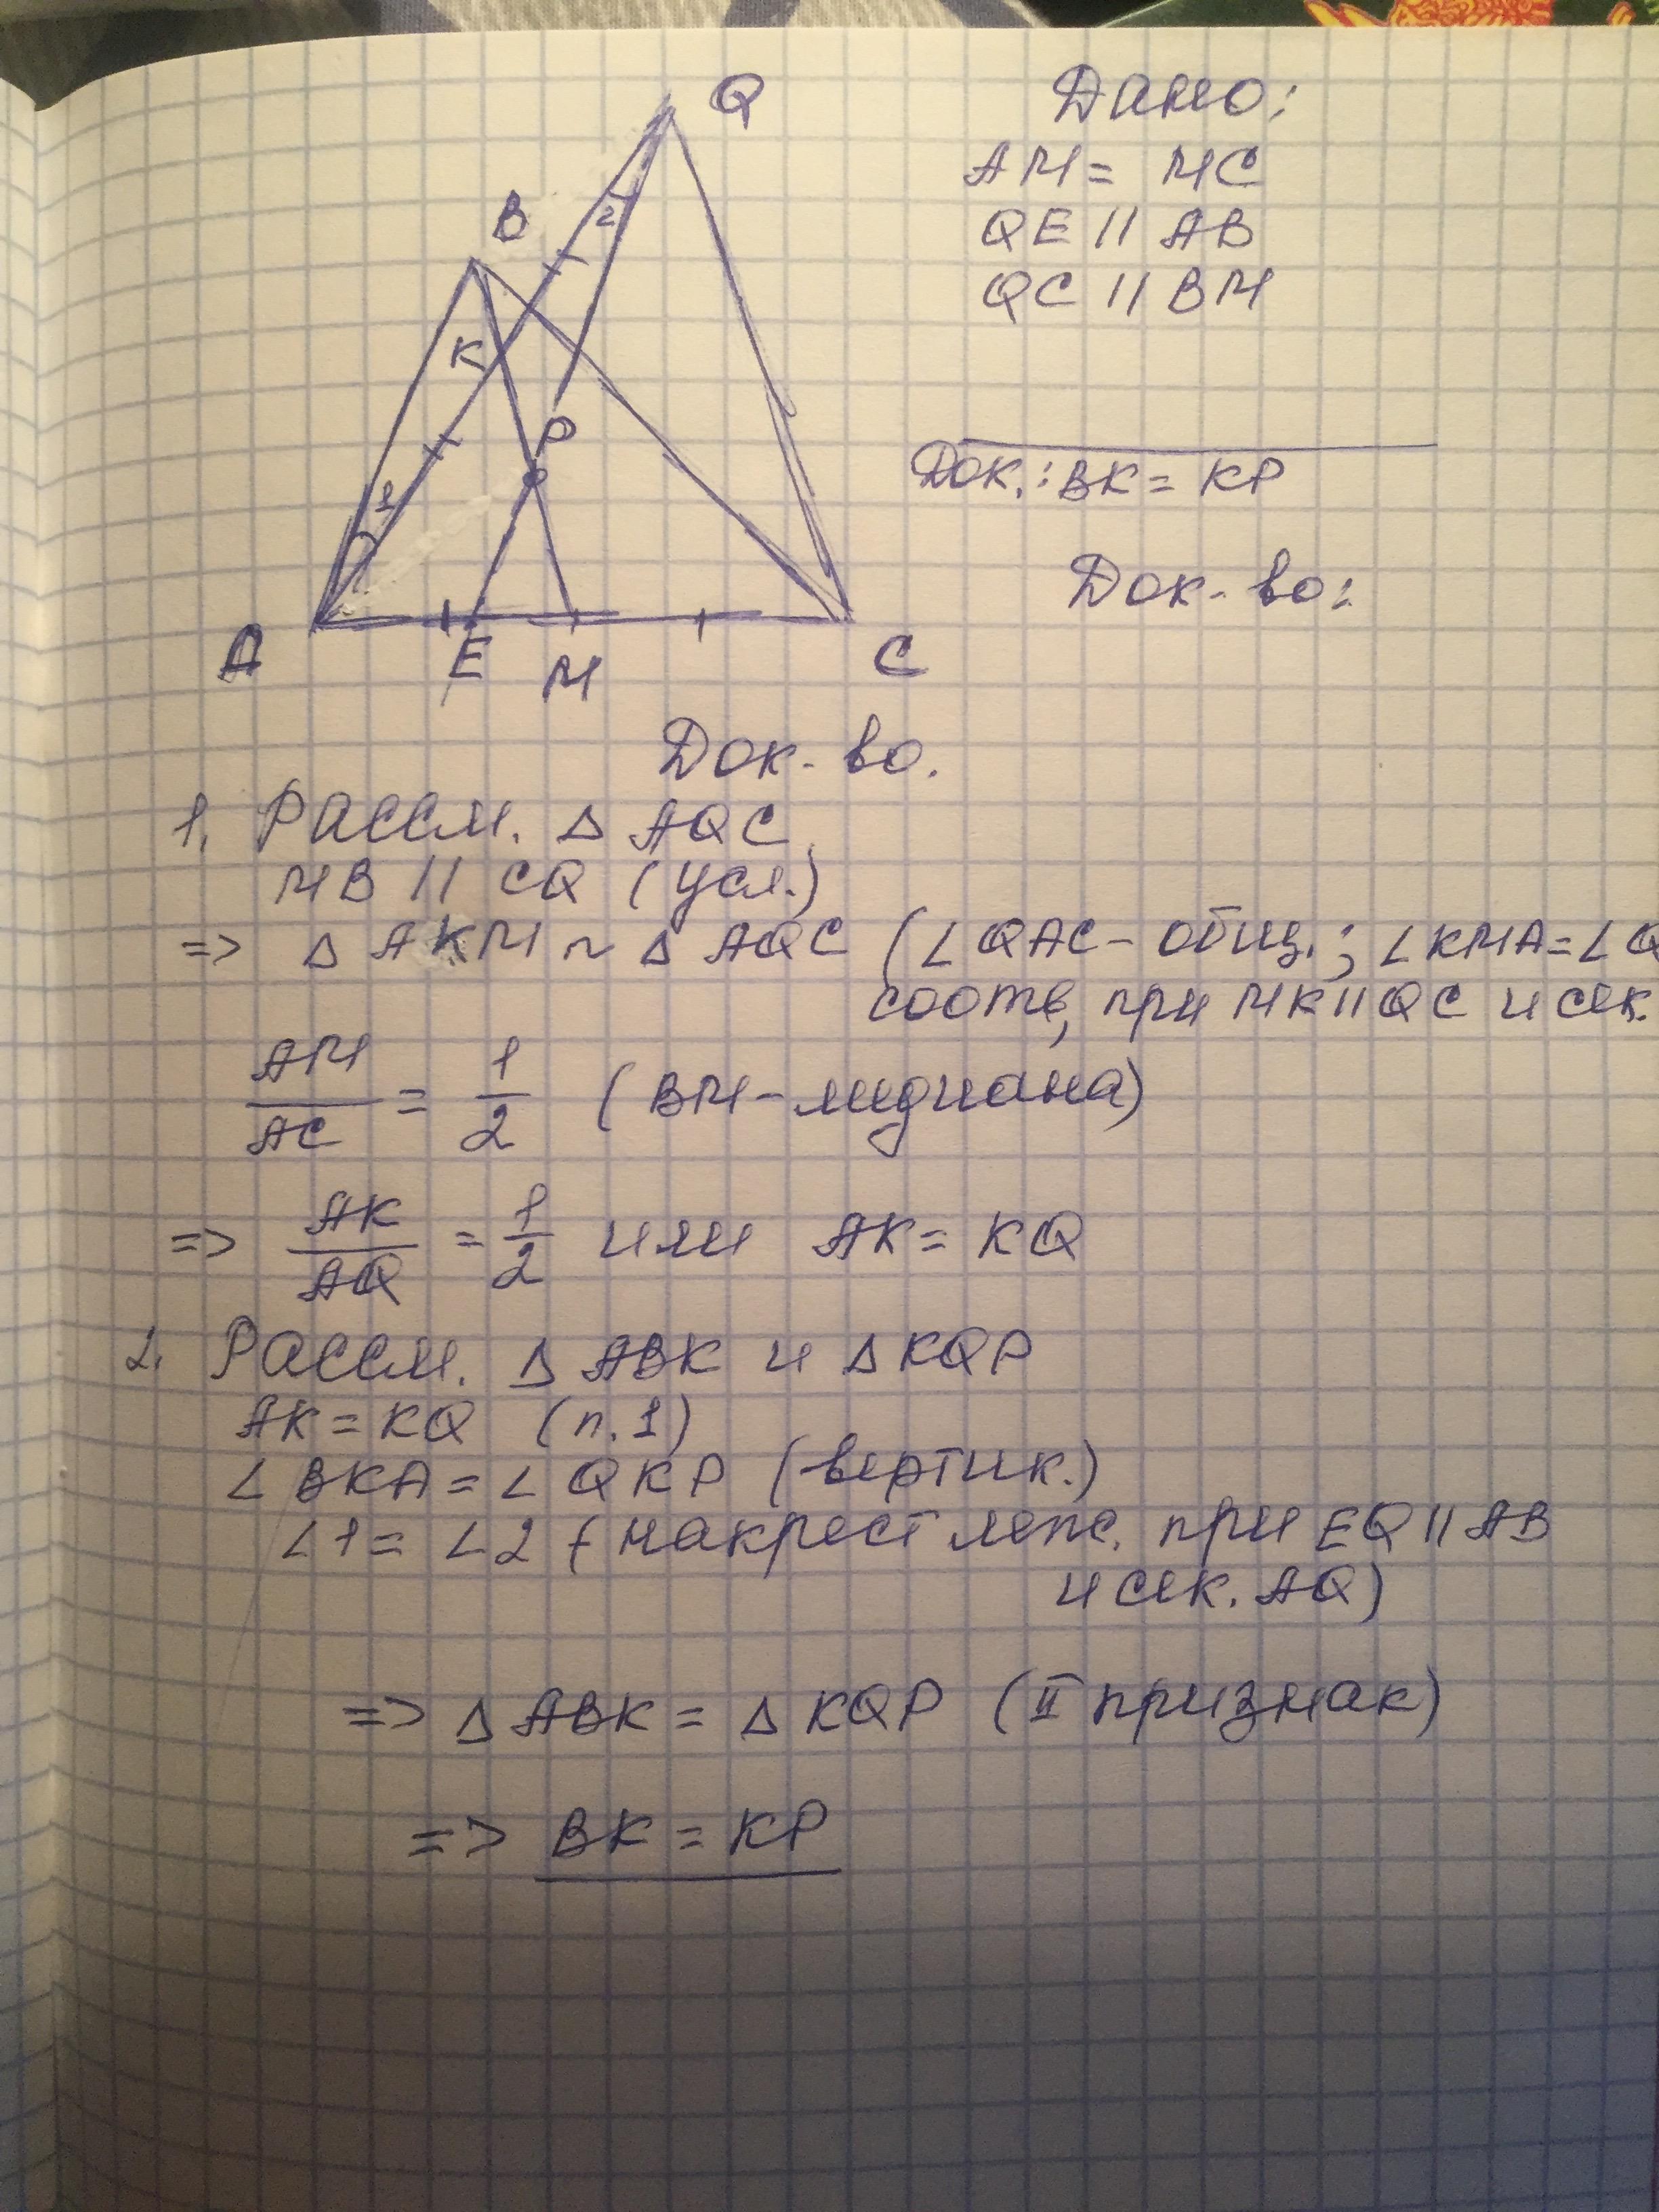 Q
B
2
K
P
1
A
E
M
C
Дано:
AM = MC
QE || AB
QC || BM
Док.: BK = KP
Док-во:
Док-во.
1. Рассм. Δ AQC,
MB || CQ (усл.)
=> Δ AKM ~ Δ AQC (∠QAC - общ.; ∠KMA = ∠Q
соотв, при MK || QC и сек.
AM/AC = 1/2 (BM - мидиана)
=> AK/AQ = 1/2 или AK = KQ
2. Рассм. Δ ABK и Δ KQP
AK = KQ (п. 1)
∠ BKA = ∠ QKP (вертик.)
∠1 = ∠2 (накрест леж. при EQ || AB
и сек. AQ)
=> Δ ABK = Δ KQP (II признак)
=> BK = KP